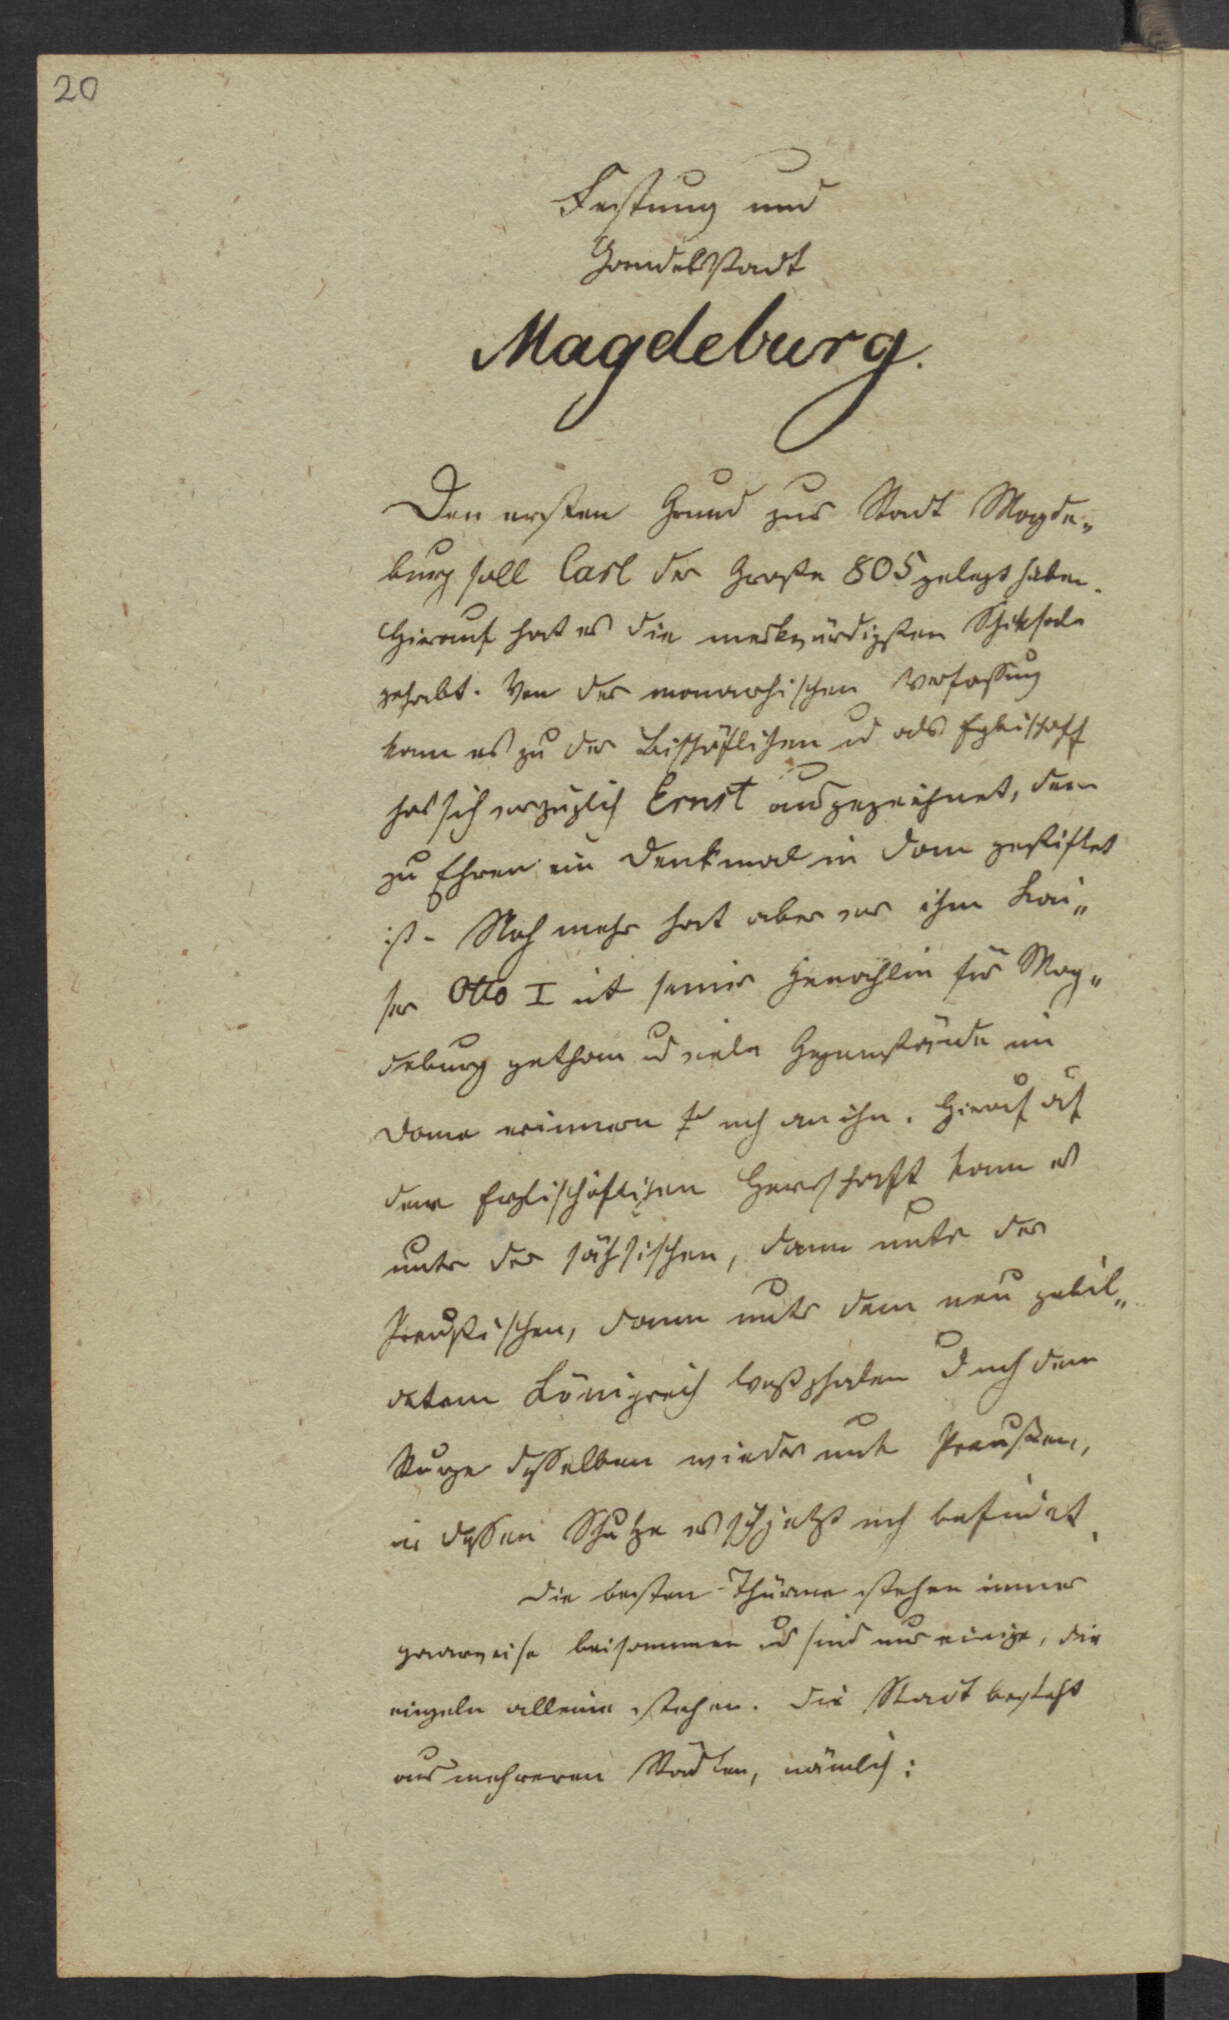 20
Festung und
Handelsstadt
Magdeburg.
Den ersten Grund zur Stadt Magde„
burg soll Carl der Große 805 gelegt haben.
Hierauf hat es die merkwürdigsten Schiksale
gehabt. Von der monarchischen Verfassung
kam es zu der Bischöflichen u als Erzbischoff
hat sich vorzüglich Ernst ausgezeichnet, dem
zu Ehren ein Denkmal in Dom gestiftet
ist. Noch mehr hat aber vor ihm Kai„
ser Otto I mit seiner Gemahlin für Mag„
deburg gethan u viele Gegenstände im
Dome erinnern noch an ihn. Hierauf auf
der Erzbischöflichen Herrschaft kam es
unter der sächsischen, dann unter der
Preußischen, dann unter dem neu gebil„
detem Königreich Westphalen u nach dem
Sturze desselben wieder unter Preußen,
in dessen Schutze es sich jetzt noch befindet.
Die besten Thürme stehen immer
paarweise beisammen u sind nur einige, die
einzeln alleine stehen. Die Stadt besteht
aus mehreren Städten, nämlich: